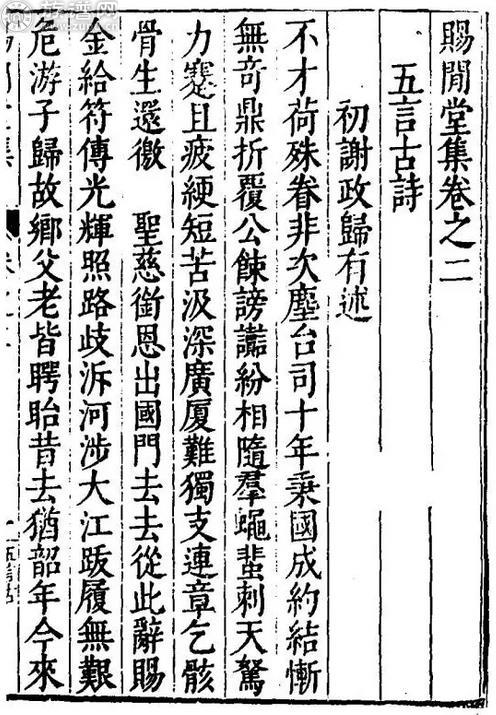 賜閒堂集卷之二
五言古詩
初謝政歸有述
不才荷殊眷非次塵台司十年秉國成約結慚
無竒鼎折覆公餗謗讟紛相隨羣蠅蜚刺天駑
力蹇且疲綆短苦汲深廣厦難獨支連章乞骸
骨生還徼 聖慈銜恩出國門去去從此辭賜
金給符傳光輝照路歧泝河涉大江跋履無艱
危游子歸故鄉父老皆聘眙昔去猶韶年今來